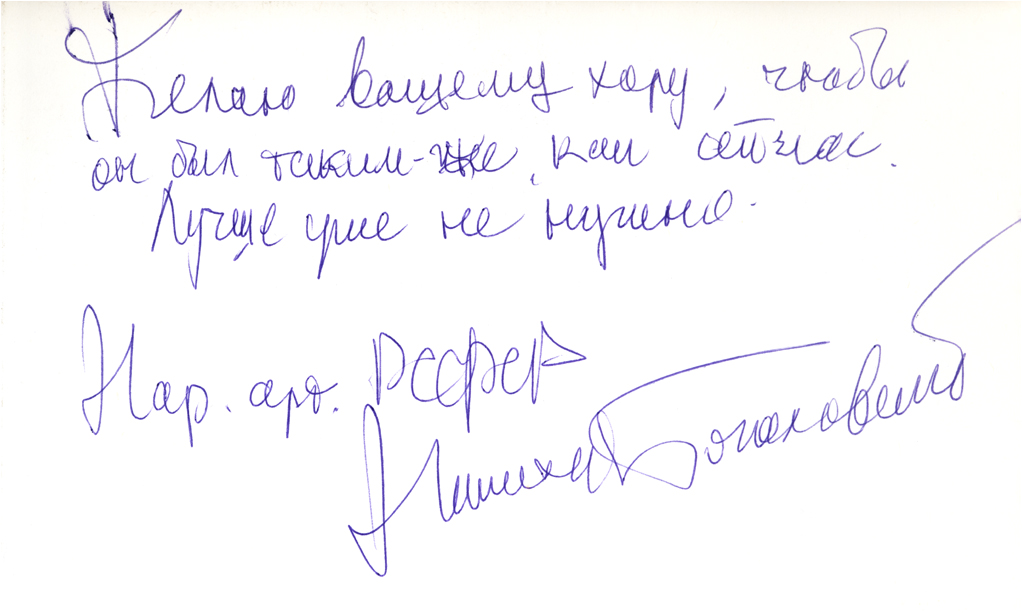 Желаю вашему хору, чтобы
он был таким-же, как сейчас.
Лучше уже не нужно.
Нар. арт. РСФСР
Никита Богословский